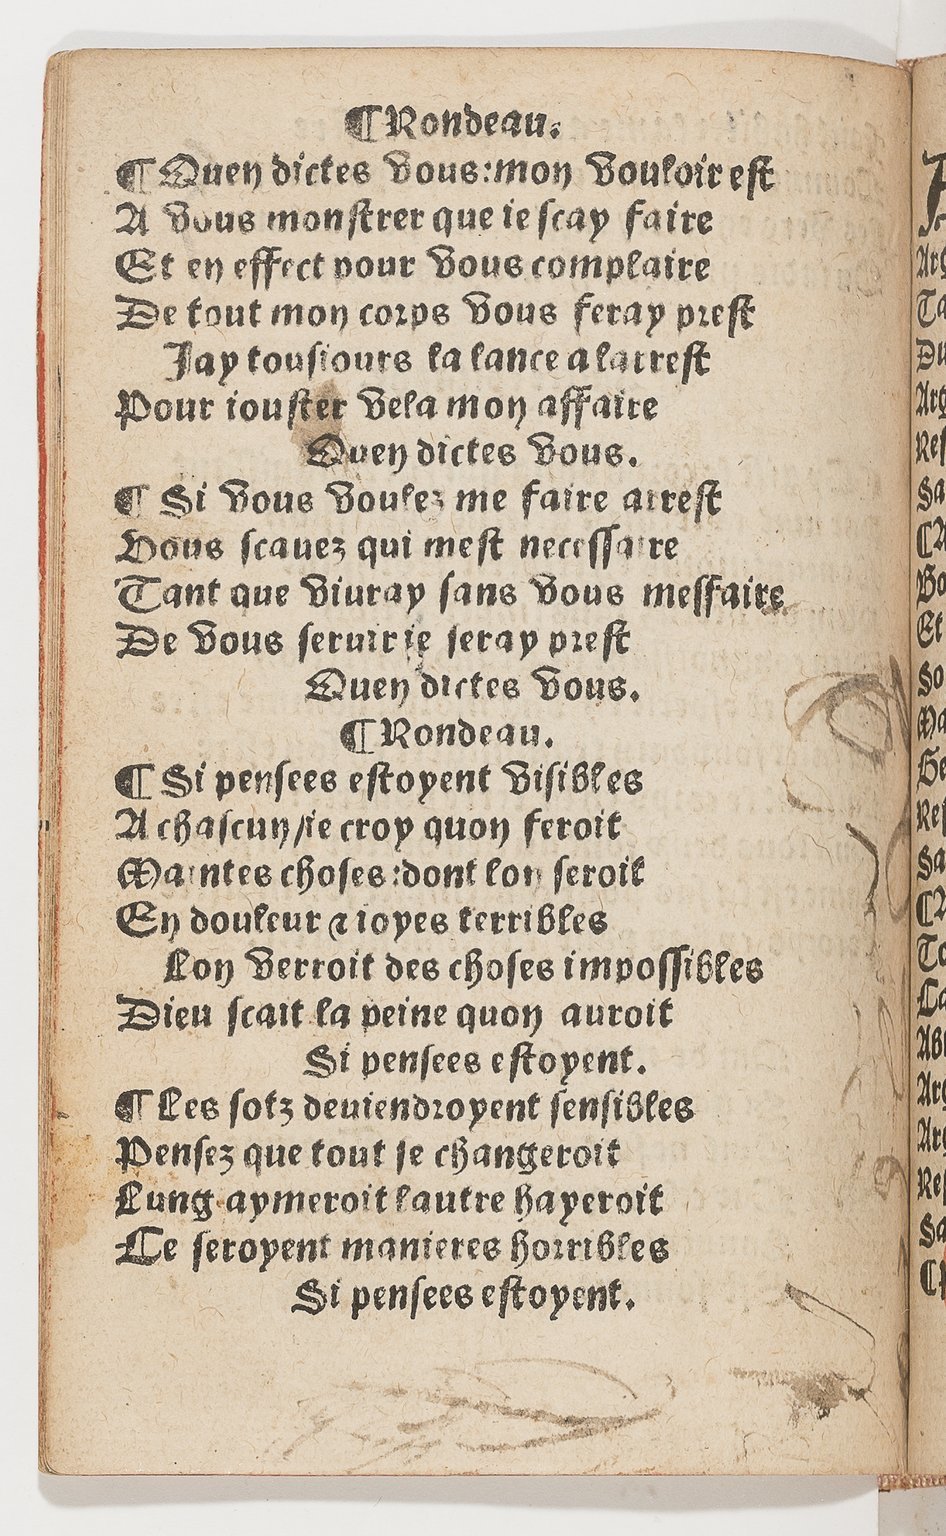 ¶Rondeau.
¶Quen dictes vous:mon vouloir est
A vous monstrer que ie scay faire
Et en effect pour vous complaire
De tout mon corps vous feray prest
Jay tousiours la lance a larrest
Pour iouster vela mon affaire
Quen dictes vous.
¶ Si vous voulez me faire arrest
Vous scauez qui mest necessaire
Tant que viuray sans vous meffaire
De vous seruir ie seray prest
Quen dictes vous.
¶Rondeau.
¶ Si pensees estoyent visibles
A chascun/ie croy quon feroit
Maintes choses:dont lon seroit
En douleur ⁊ ioyes terribles
Lon verroit des choses impossibles
Dieu scait la peine quon auroit
Si pensees estoyent.
¶ Les sotz deuiendroyent sensibles
Pensez que tout se changeroit
Lung aymeroit lautre hayeroit
Ce seroyent manieres horribles
Si pensees estoyent.
Arg
Ta
Du
Arg
Res
Sa
Et
So
Ma
Res
Sa
To
Arg
Arg
Res
Sa